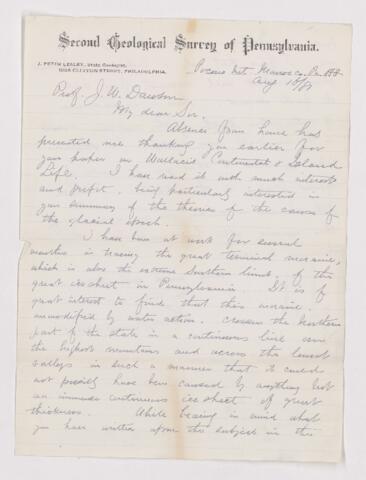 Second Geological Survey of Pennsylvania.
J. PETER LESLEY, State Geologist,
1008 CLINTON STREET, PHILADELPHIA.
Pocono Mt. Monroe Co. Pa. 188
Aug 10/81
Prof. J. W. Dawson
My dear Sir.
Absence from home has
prevented me thanking you earlier for
your paper on Wallace's Continental & Island
Life. I have read it with much interest
and profit, being particularly interested in
your summary of the theories of the causes of
the glacial epoch.
I have been at work for several
months in tracing the great terminal moraine,
which is also the extreme southern limit, of the
great ice sheet in Pennsylvania. It is of
great interest to find that this moraine,
unmodified by water action, crosses the Northern
part of the state in a continuous line over
the highest mountains and across the lowest
valleys in such a manner that it could
not possibly have been caused by anything but
an immense continuous ice sheet of great
thickness. While bearing in mind what
you have written upon this subject in the